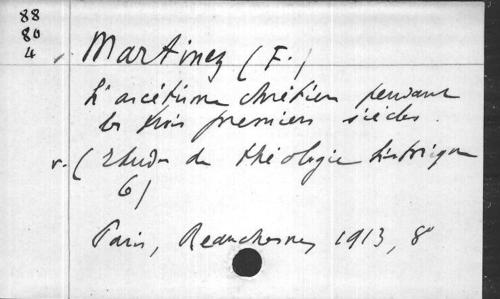 88
80
4
Martinez (F.)
L'ascétisme chrétien pendant
les trois premiers siècles.
v. (Etudes de théologie historique
6)
Paris, Beauchesne, 1913, 8°